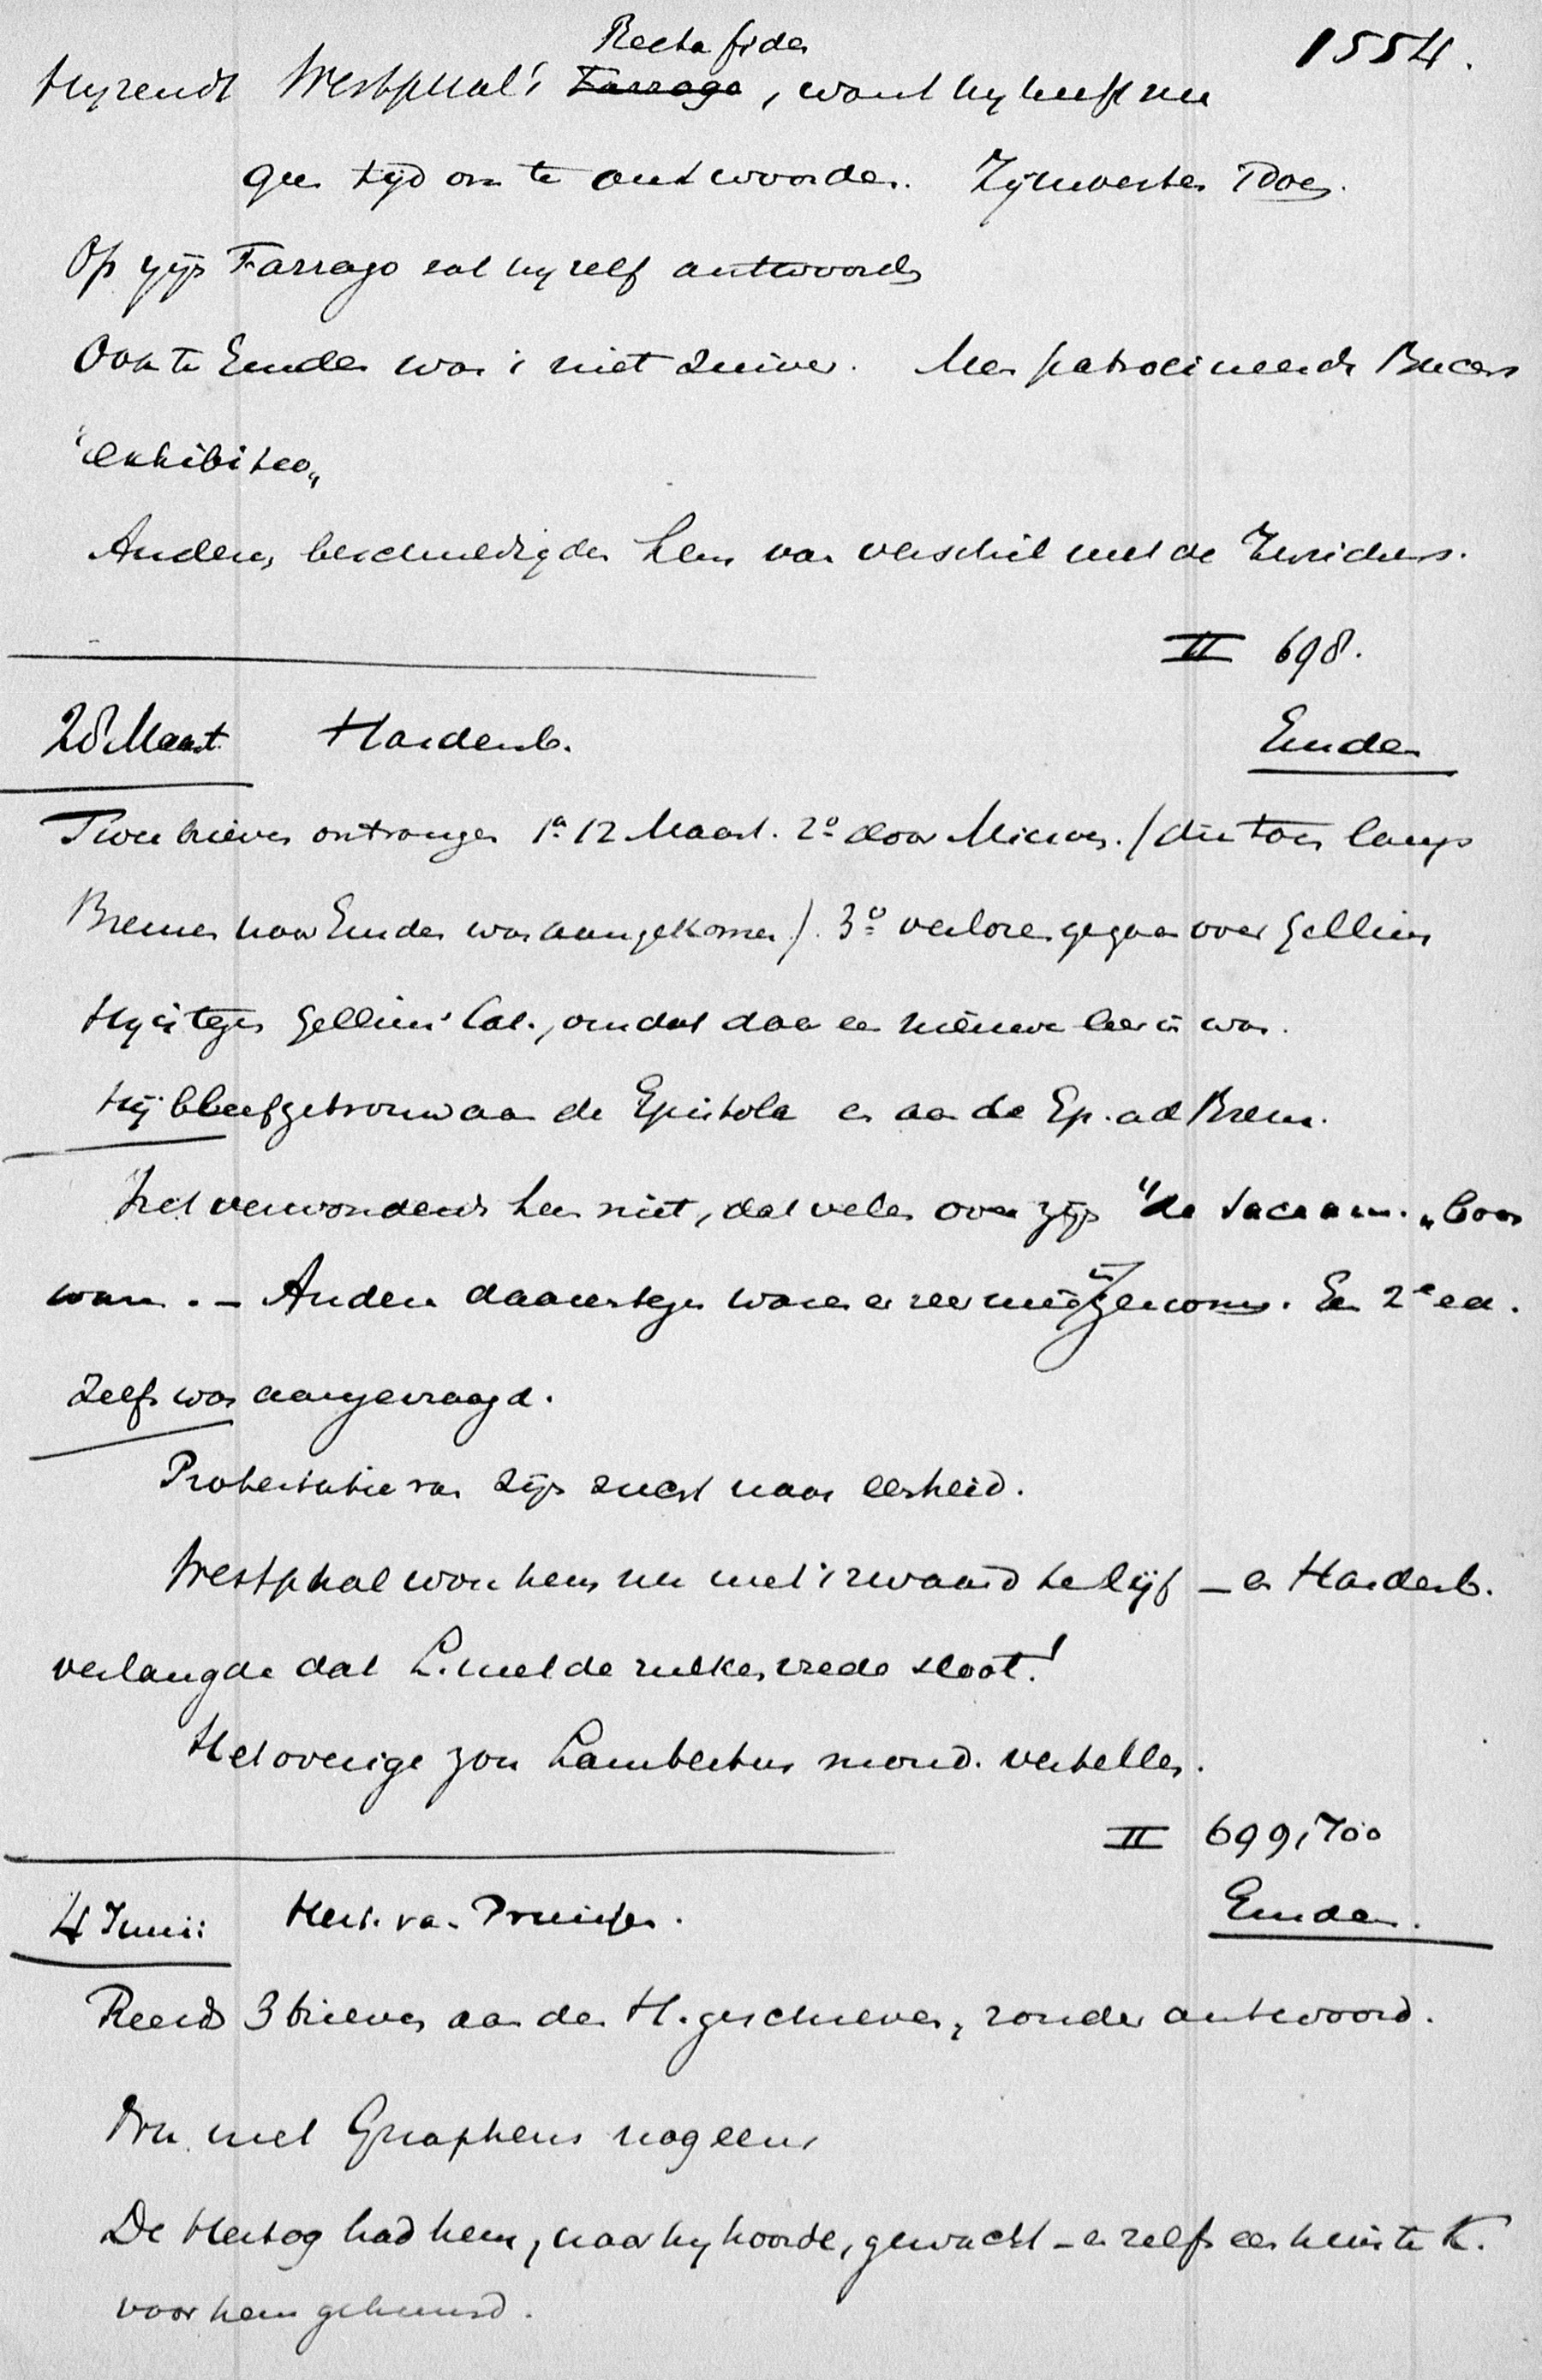 1554.
Recta fides
Hij zendt Westphal's Farrago, want hij heeft nu
geen tijd om te antwoorden. Zij moesten 't Doen.
Op zijn Farrago zal hij zelf antwoorden
Ook te Emden was 't niet zuiver. Men patrocineerde Bucers
"exhibitio"
Anderen beschuldigden hem van verschil met de Zurichers.
II 698.
28 Maart Hardenb. Emden
Twee brieven ontvangen 1º 12 Maart. 2º door Micron. (die toen langs
Bremen naar Emden was aangekomen). 3º verloren gegaan over Gellius
Hij is tegen Gellius' Cat., omdat daar een nieuwe leer in was.
Hij bleef getrouw aan de Epistola en aan de Ep. ad Brem.
Het verwonderde hem niet, dat velen over zijn "de Sacram." boos
waren. - Anderen daarentegen waren er zeer mee ingenomen. Een 2e ed.
zelfs was aangevraagd.
Protestatie van zijn zucht naar eenheid.
Westphal wou hem nu met 't zwaard te lijf - en Hardenb.
verlangde dat L. met de zulken vrede sloot!
Het overige zou Lambertus mond. vertellen.
II 699, 700
4 Junii Hert. van Pruissen. Emden.
Reeds 3 brieven aan den H. geschreven, zonder antwoord.
Nu met Gnapheus nog eens
De Hertog had hem, naar hij hoorde, gewacht - en zelfs een huis te K.
voor hem gehuurd.